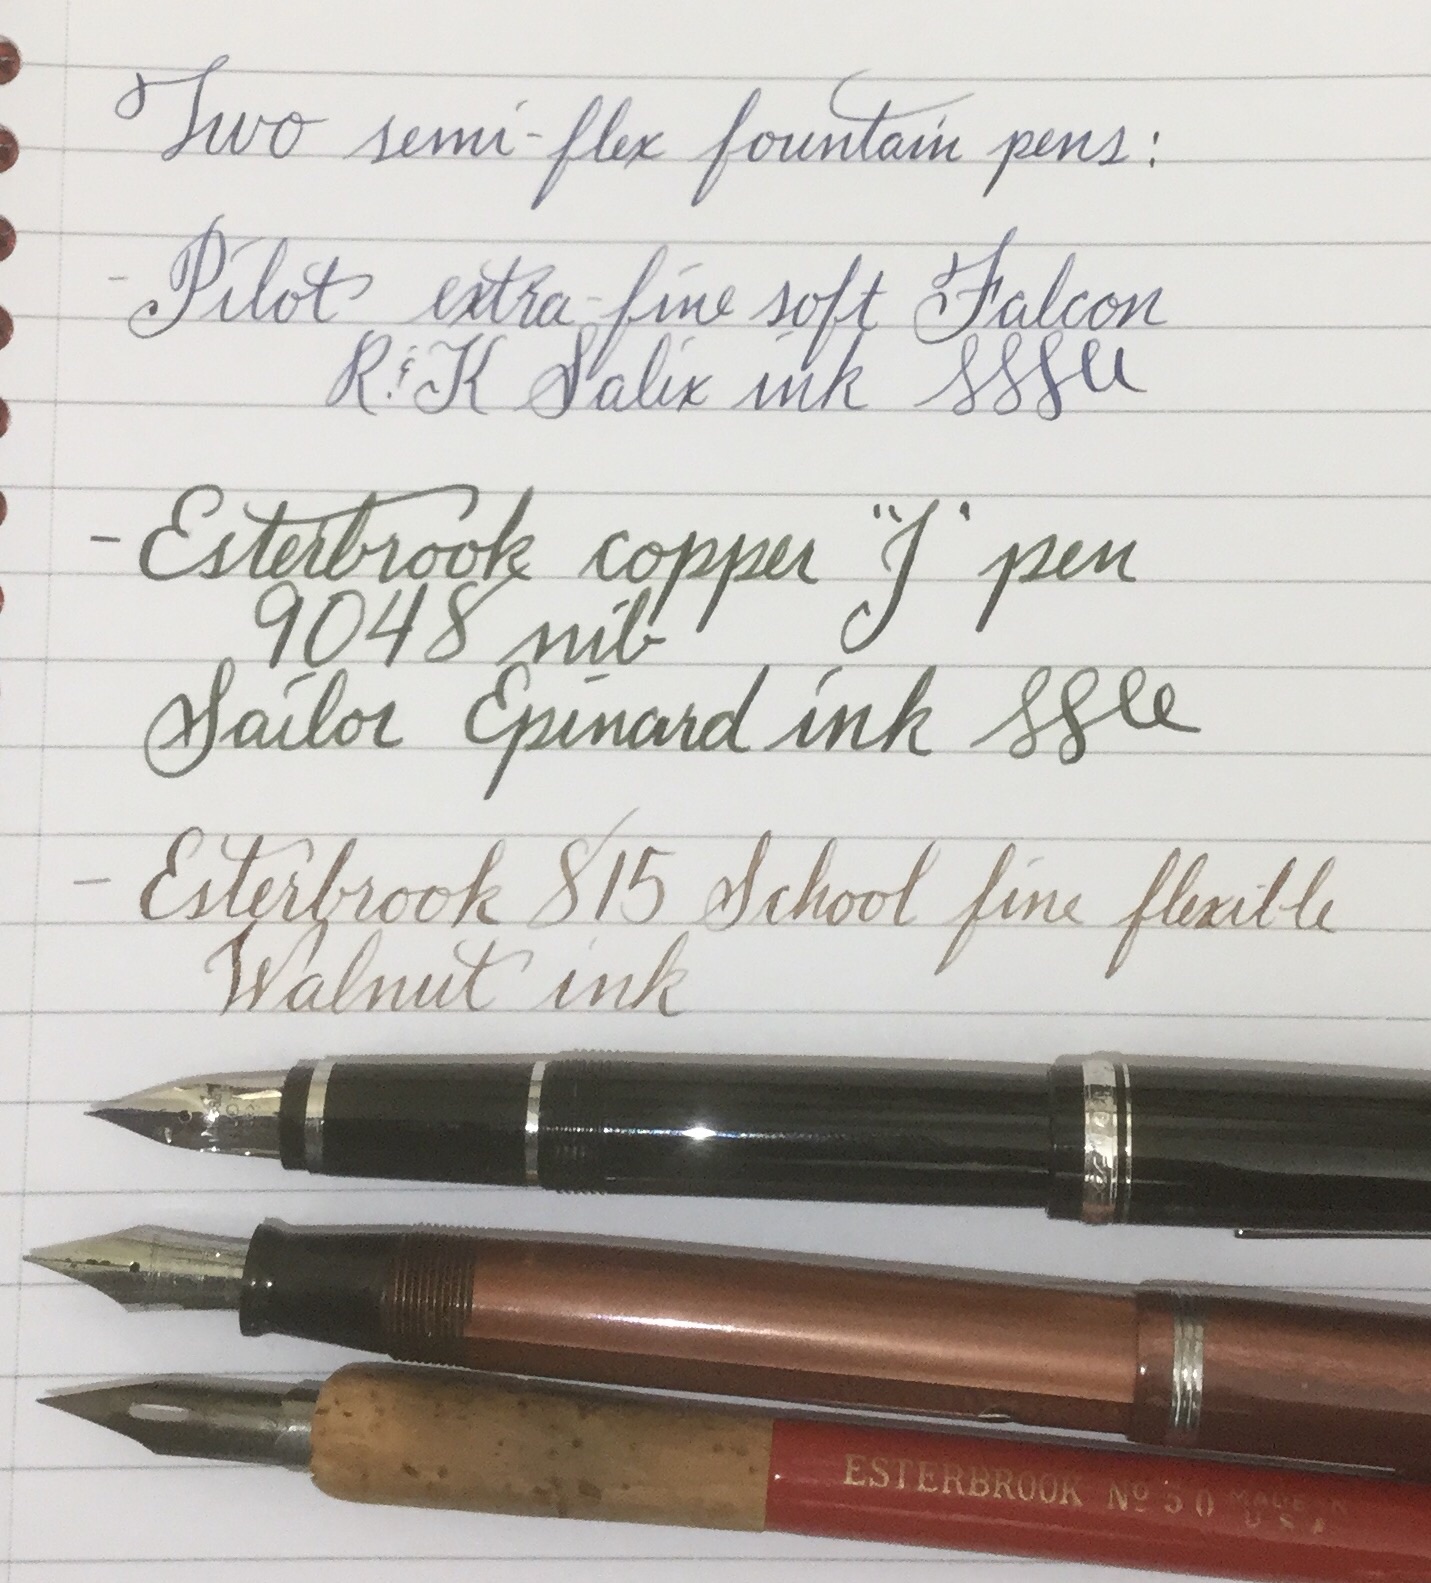 Two semi-flex fountain pens:
- Pilot extra-fine soft Falcon
R&K Salix ink
- Esterbrook copper "J" pen
9048 nib
Sailor Epinard ink
- Esterbrook 815 School fine flexible
Walnut ink
ESTERBROOK No 50 MADE IN
U S A